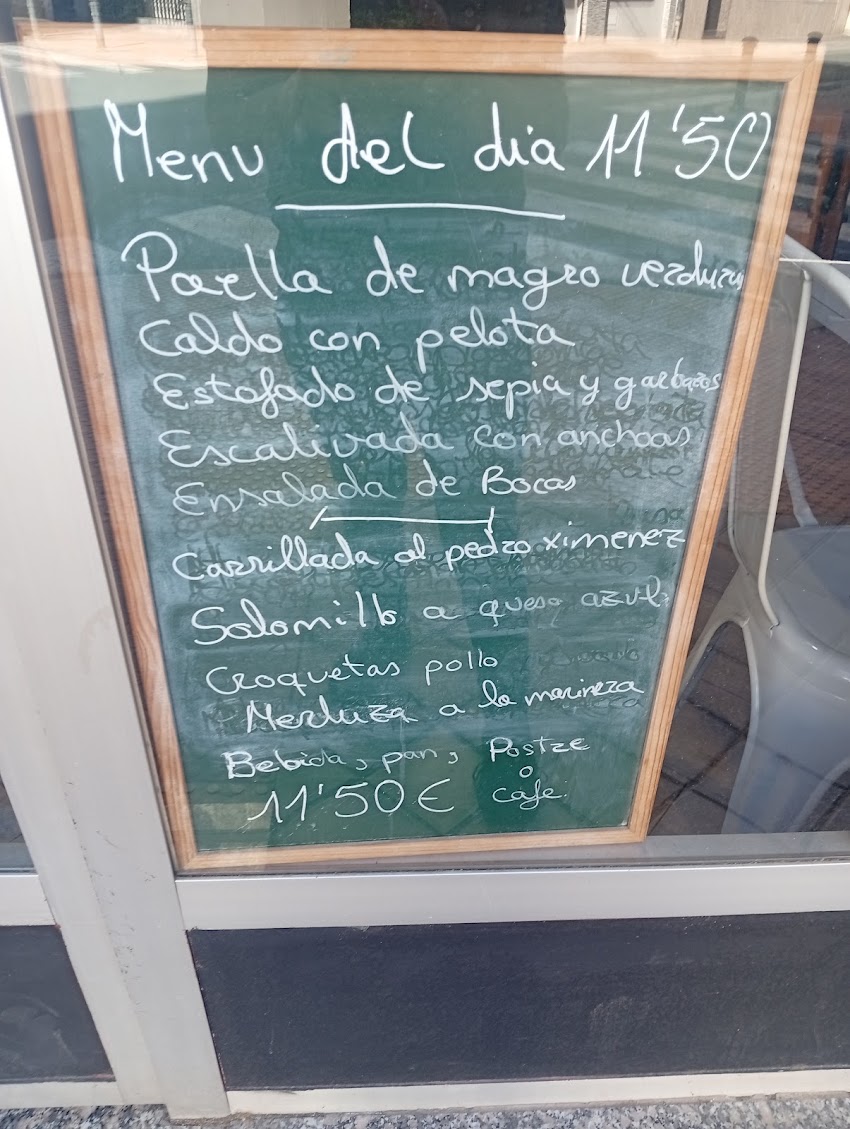 Menu del dia 11'50
Paella de magro verdura
Caldo con pelota
Estofado de sepia y garbazos
Escalivada con anchoas
Ensalada de Bocas
Carrillada al pedro ximenez
Solomillo a queso azul
Croquetas pollo
Merluza a la marinera
Bebida, pan, Postre
o
11'50€ cafe.